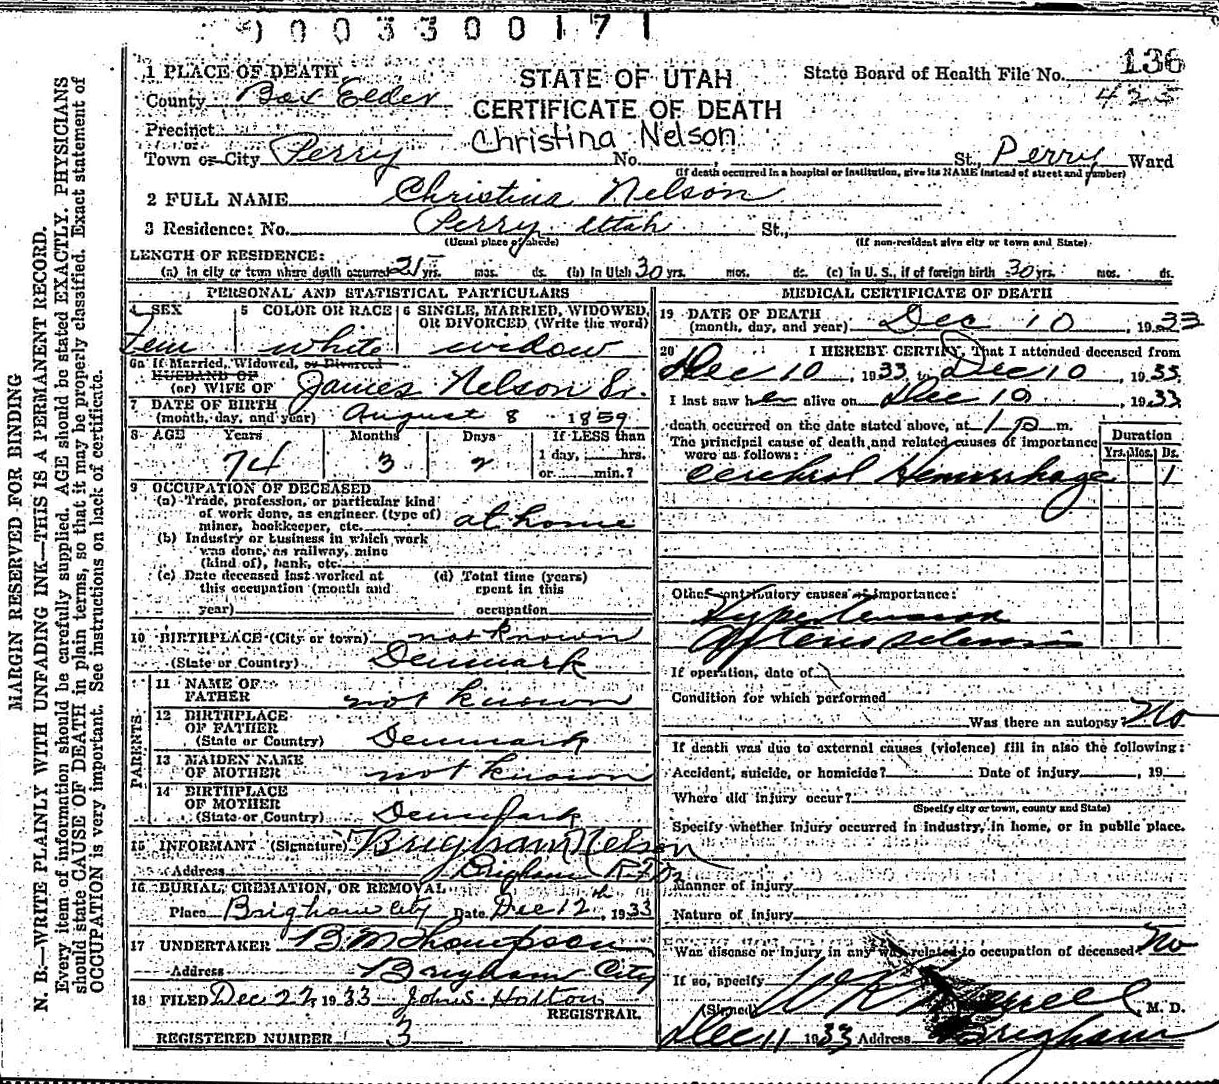 003300171
136
1 PLACE OF DEATH
STATE OF UTAH
State Board of Health File No.
County Box Elder
CERTIFICATE OF DEATH
425
Precinct
Christina Nelson
or
Town or City Perry No. , St., Perry Ward
(If death occurred in a hospital or institution, give its NAME instead of street and number)
2 FULL NAME Christina Nelson
3 Residence: No. Perry Utah St.,
(Usual place of abode) (If non-resident give city or town and State)
LENGTH OF RESIDENCE:
(a) in city or town where death occurred 25 yrs. mos. ds. (b) In Utah 30 yrs. mos. ds. (c) in U. S., if of foreign birth 30 yrs. mos. ds.
PERSONAL AND STATISTICAL PARTICULARS
4 SEX 5 COLOR OR RACE 6 SINGLE, MARRIED, WIDOWED, OR DIVORCED (Write the word)
Fem white widow
6a If Married, Widowed, or Divorced
HUSBAND OF
(or) WIFE OF James Nelson Sr.
7 DATE OF BIRTH
(month, day, and year) August 8 1859
8 AGE Years Months Days If LESS than
1 day, hrs.
74 3 2 or min.?
9 OCCUPATION OF DECEASED
(a) Trade, profession, or particular kind
of work done, as engineer (type of)
miner, bookkeeper, etc. at home
(b) Industry or business in which work
was done, as railway, mine
(kind of), bank, etc.
(c) Date deceased last worked at (d) Total time (years)
this occupation (month and spent in this
year) occupation
10 BIRTHPLACE (City or town) not known
(State or Country) Denmark
PARENTS
11 NAME OF
FATHER not known
12 BIRTHPLACE
OF FATHER
(State or Country) Denmark
13 MAIDEN NAME
OF MOTHER not known
14 BIRTHPLACE
OF MOTHER
(State or Country) Denmark
15 INFORMANT (Signature) Brigham Nelson
Address Brigham R.F.D.
16 BURIAL, CREMATION, OR REMOVAL
Place Brigham City Date Dec 12th, 1933
17 UNDERTAKER B M Thompson
Address Brigham City
18 FILED Dec 22, 1933 John S. Horton
REGISTRAR.
REGISTERED NUMBER 3
MEDICAL CERTIFICATE OF DEATH
19 DATE OF DEATH
(month, day, and year) Dec 10, 1933
20 I HEREBY CERTIFY, That I attended deceased from
Dec 10, 1933, to Dec 10, 1933.
I last saw her alive on Dec 10, 1933
death occurred on the date stated above, at 1 P m.
The principal cause of death and related causes of importance
were as follows:
Duration
Yrs. Mos. Ds.
Cerebral Hemorrhage 1
Other contributory causes of importance:
Hypertension
If operation, date of
Condition for which performed
Was there an autopsy? No
If death was due to external causes (violence) fill in also the following:
Accident, suicide, or homicide? Date of injury , 19
Where did injury occur?
(Specify city or town, county and State)
Specify whether injury occurred in industry, in home, or in public place.
Manner of injury
Nature of injury
Was disease or injury in any way related to occupation of deceased? No
If so, specify
(Signed) , M. D.
Dec 11 1933 Address Brigham
MARGIN RESERVED FOR BINDING
N. B.—WRITE PLAINLY WITH UNFADING INK—THIS IS A PERMANENT RECORD.
Every item of information should be carefully supplied. AGE should be stated EXACTLY. PHYSICIANS
should state CAUSE OF DEATH in plain terms, so that it may be properly classified. Exact statement of
OCCUPATION is very important. See instructions on back of certificate.